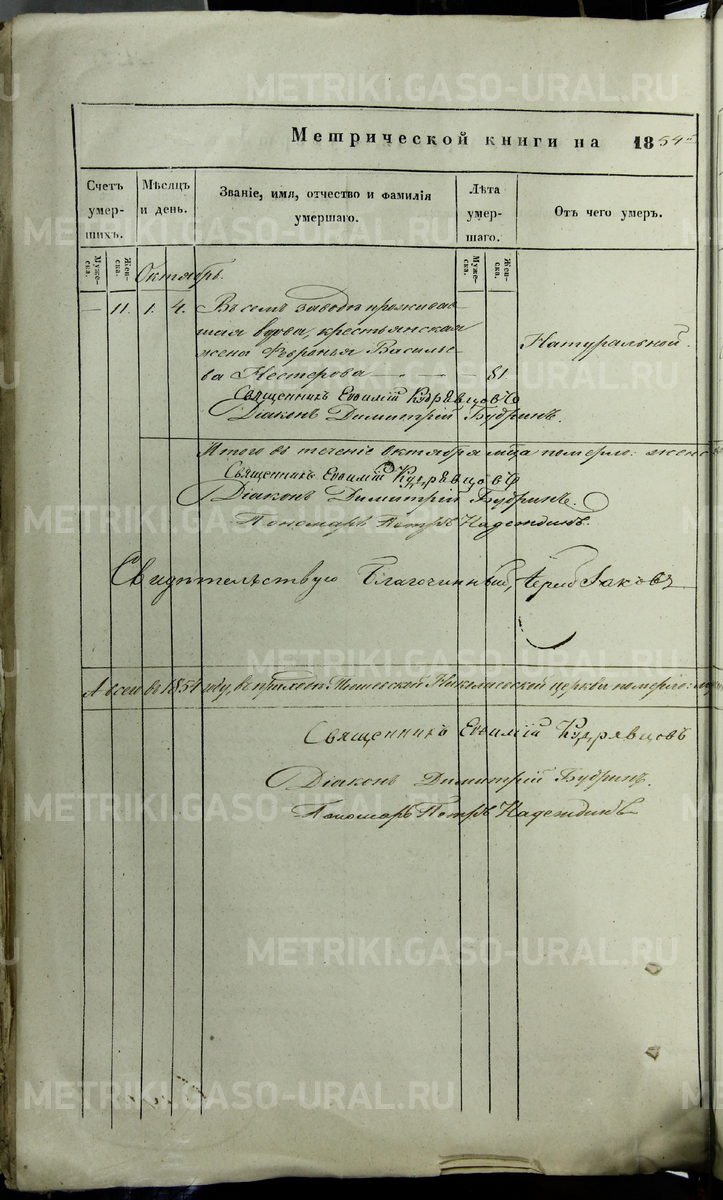 Метрической книги на 1854
Счетъ умер-шихъ.
Мѣсяцъ и день.
Званіе, имя, отчество и фамилія умершаго.
Лѣта умер-шаго.
Отъ чего умеръ.
Муже-ска.
Жен-ска.
Муже-ска.
Жен-ска.
Октябрь.
— 11. 1. 4. Въ семъ заводѣ проживав-
шая вдова, крестьянская
жена Февронья Василье-
ва Нестерова — — — 81
Натуральной.
Священникъ Евѳимій Кудрявцовъ
Діаконъ Димитрій Будринъ.
Итого въ теченіе октября мца померло: женс
Священникъ Евѳимій Кудрявцовъ
Діаконъ Димитрій Будринъ.
Пономарь Петръ Надеждинъ.
Свидѣтельствую Благочинный, Іаковъ
А всего въ 1854 году, въ приходѣ Николаевской церкви померло:
Священникъ Евѳимій Кудрявцовъ
Діаконъ Димитрій Будринъ.
Пономарь Петръ Надеждинъ
METRIKI.GASO-URAL.RU